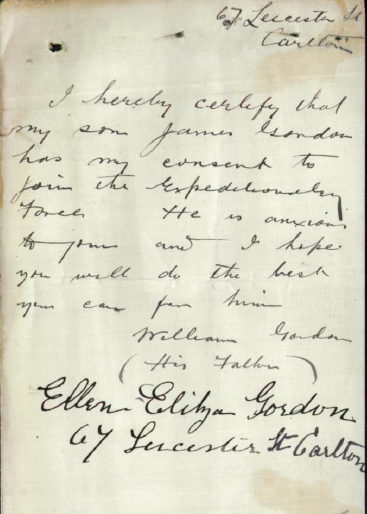 67 Leicester St
Carlton
I hereby certify that
my son James Gordon
has my consent to
join the Expeditionary
Force He is anxious
to join and I hope
you will do the best
you can for him
William Gordon
(His Father)
Ellen Eliza Gordon
67 Leicester St Carlton